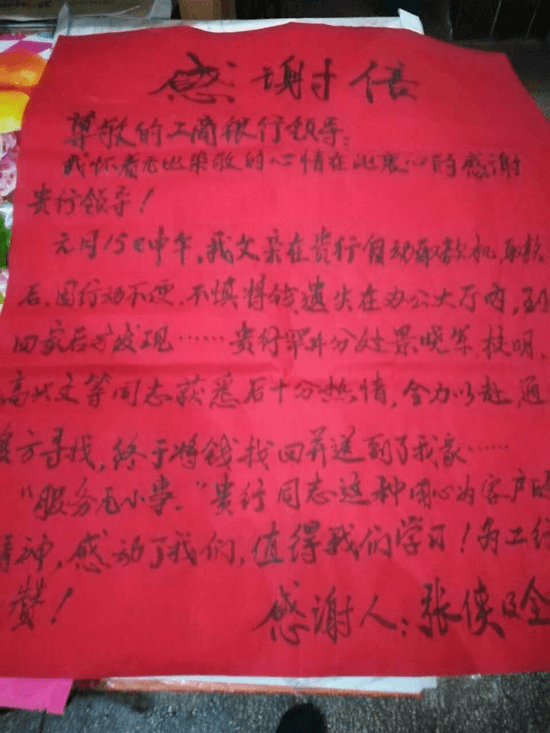 感谢信
尊敬的工商银行领导:
我怀着无比荣敬的心情在此衷心的感谢
贵行领导!
元月15日中午,我父亲在贵行自动取款机,取款
后,因行动不便,不慎将钱遗失在办公大厅内,到
回家后才发现……贵行罕井分处景晓军 桂明、
高兴文等同志获悉后十分热情,全力以赴,通
方寻找,终于将钱找回并送到了我家……
"服务无小事,"贵行同志这种用心为客户的
精神,感动了我们,值得我们学习!为工行
赞!
感谢人:张侠